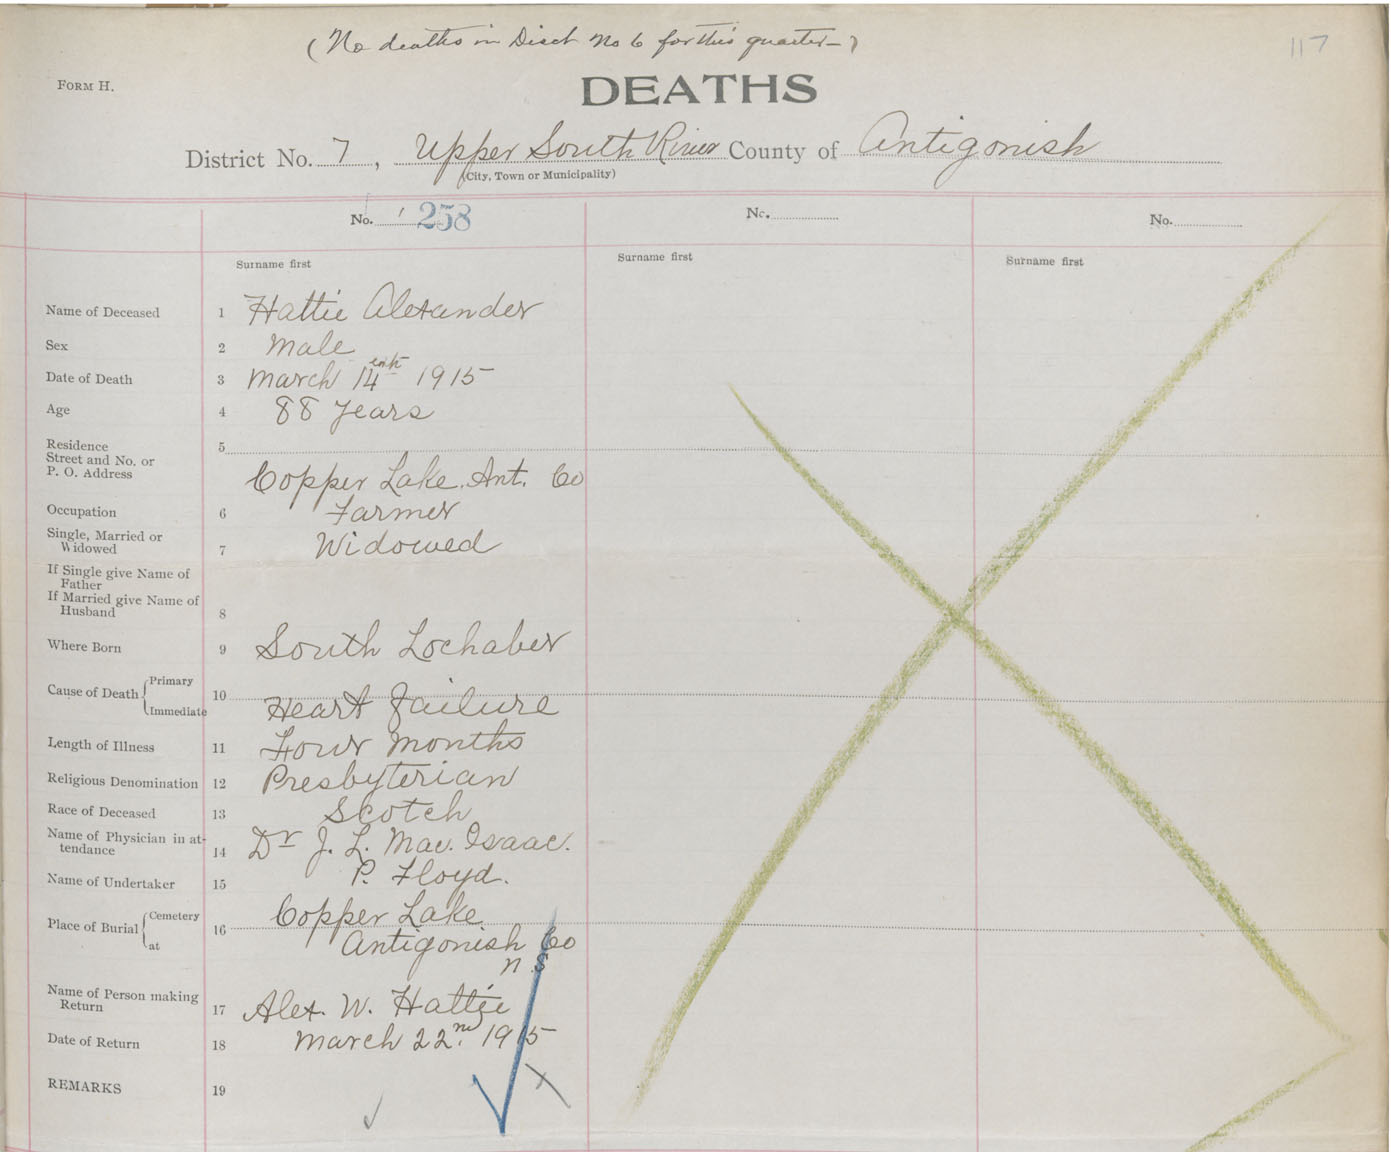 (No deaths in Disct No 6 for this quarter—)
117
FORM H.
DEATHS
District No. 7, Upper South River County of Antigonish
(City, Town or Municipality)
No. 1 258
No.
No.
Surname first
Surname first
Surname first
Name of Deceased 1 Hattie Alexander
Sex 2 Male
Date of Death 3 March 14enth 1915
Age 4 88 years
Residence 5
Street and No. or
P. O. Address Copper Lake. Ant. Co
Occupation 6 Farmer
Single, Married or
Widowed 7 Widowed
If Single give Name of
Father
If Married give Name of
Husband 8
Where Born 9 South Lochaber
Cause of Death Primary 10
Immediate Heart failure
Length of Illness 11 Four months
Religious Denomination 12 Presbyterian
Race of Deceased 13 Scotch
Name of Physician in at-
tendance 14 Dr J. L. Mac. Isaac.
Name of Undertaker 15 P. Floyd.
Place of Burial Cemetery 16 Copper Lake
at Antigonish Co
N.S
Name of Person making
Return 17 Alex. W. Hattie
Date of Return 18 March 22nd. 1915
REMARKS 19